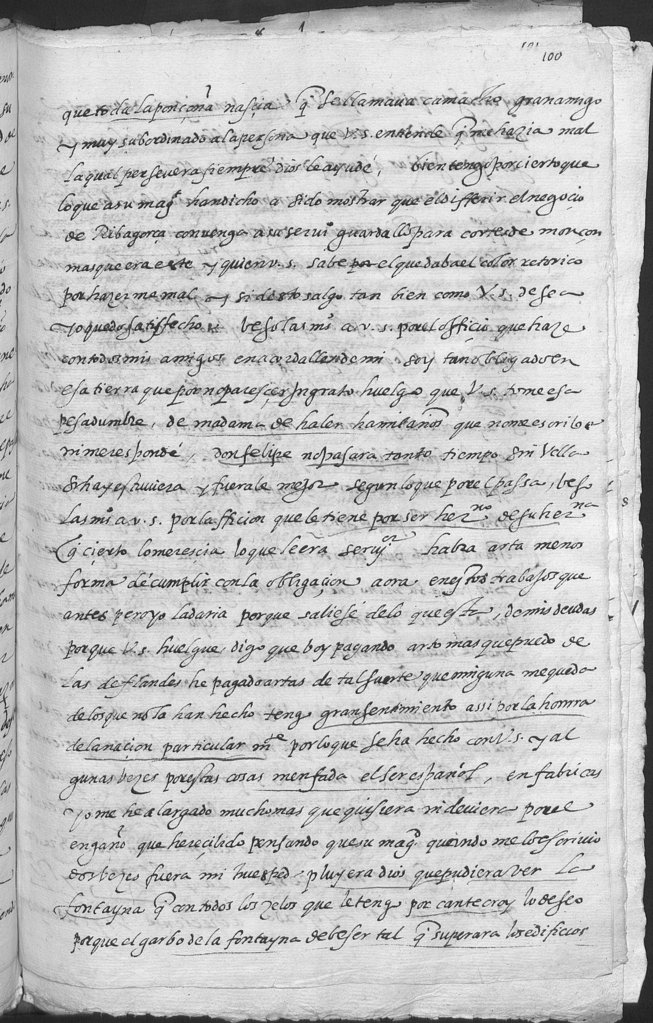 100
que toda la ponçoña nasçia q̃ se llamaua camacho gran amigo
y muy subordinado a la persona que v.s. entiende q̃ me hazia mal
la qual perseuera siempre dios le ayude, bien tengo por cierto que
lo que a su mag.d han dicho a sido mostrar que el differir el negoçio
de Ribagorça convenga a su serui.o guardallo para cortes de monçon
mas que era este y quien v.s. sabe el que daba el color retorico
por hazerme mal y si desto salgo tan bien como V.s. desea
yo quedo satisfecho besolas m.s a v.s. por el officio que haze
con todos mis amigos en acordalles de mi soy tan obligado en
esa tierra que por no paresçer Ingrato huelgo que V.s. tome esa
pesadumbre, de madama de halen ha mil años que no me escribe
ni me responde, don felipe no pasara tanto tiempo sin vella
si hay es huuiera y fuerale mejor segun lo que por el passa, beso
las m.s a v.s. por la fficion que le tiene por ser her.no de su her.na
q̃ cierto lo meresçia lo que le era seruy.or habra arta menos
forma de cumplir con la obligaçion aora en estos trabajos que
antes pero yo la daria porque saliese de lo que esta, de mis deudas
porque V.s. huelgue, digo que boy pagando arto mas que puedo de
las de flandes he pagado artas de tal suerte que ninguna me queda
de los que no la han hecho tengo gran sentimiento assi por la honrra
de la naçion particular m.te por lo que se ha hecho con V.s. y al
gunas vezes por estas cosas me enfada el ser español, en fabricas
yo me he alargado mucho mas que quisiera ni deuiera por el
engaño que he recibido pensando que su mag.d quando me lo escriuio
dos bezes fuera mi huesped pluyera a dios que pudiera ver la
fontayna q̃ con todos los zelos que le tengo por cantecroy lo deseo
porque el garbo de la fontayna debe ser tal q̃ superara los edificios